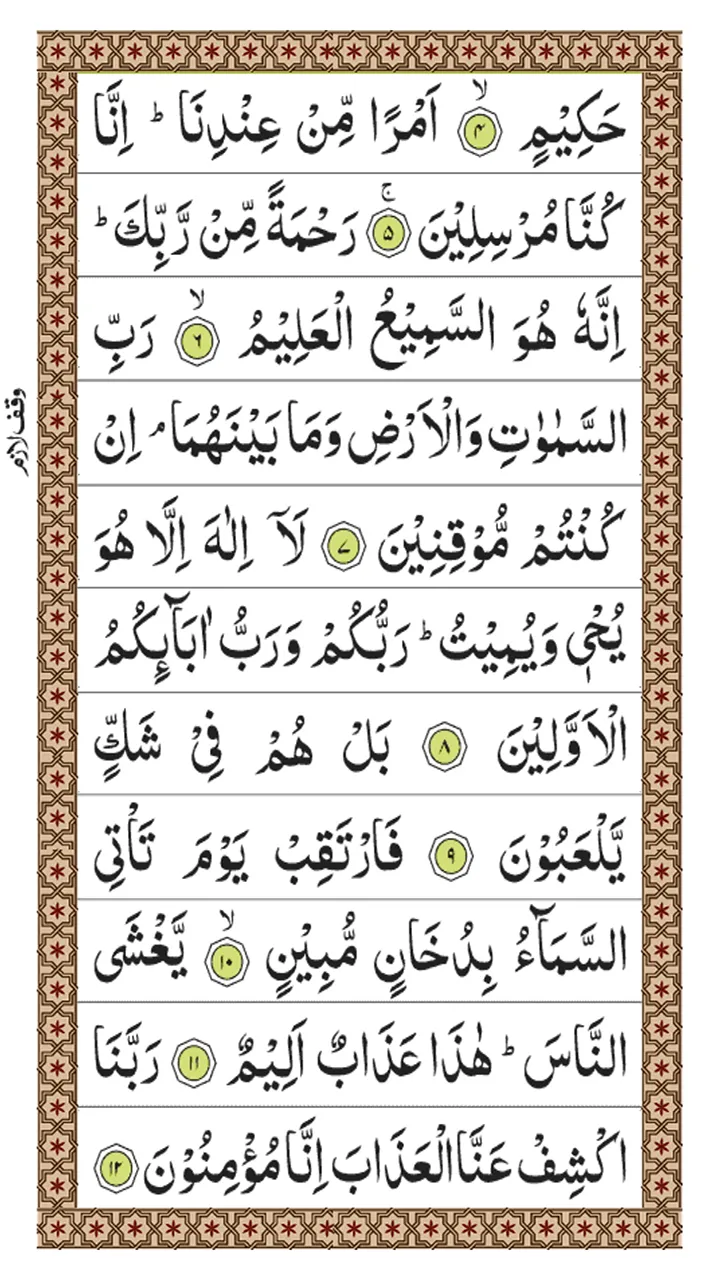 حَكِيْمٍ ۙ﴿۴﴾ اَمْرًا مِّنْ عِنْدِنَا ؕ اِنَّا
كُنَّا مُرْسِلِيْنَ ۚ﴿۵﴾ رَحْمَةً مِّنْ رَّبِّكَ ؕ
اِنَّهٗ هُوَ السَّمِيْعُ الْعَلِيْمُ ۙ﴿۶﴾ رَبِّ
السَّمٰوٰتِ وَالْاَرْضِ وَمَا بَيْنَهُمَا ۘ اِنْ
وقف لازم
كُنْتُمْ مُّوْقِنِيْنَ ﴿۷﴾ لَاۤ اِلٰهَ اِلَّا هُوَ
يُحْيٖ وَيُمِيْتُ ؕ رَبُّكُمْ وَرَبُّ اٰبَآئِكُمُ
الْاَوَّلِيْنَ ﴿۸﴾ بَلْ هُمْ فِيْ شَكٍّ
يَّلْعَبُوْنَ ﴿۹﴾ فَارْتَقِبْ يَوْمَ تَاْتِي
السَّمَآءُ بِدُخَانٍ مُّبِيْنٍ ۙ﴿۱۰﴾ يَّغْشَى
النَّاسَ ؕ هٰذَا عَذَابٌ اَلِيْمٌ ﴿۱۱﴾ رَبَّنَا
اكْشِفْ عَنَّا الْعَذَابَ اِنَّا مُؤْمِنُوْنَ ﴿۱۲﴾